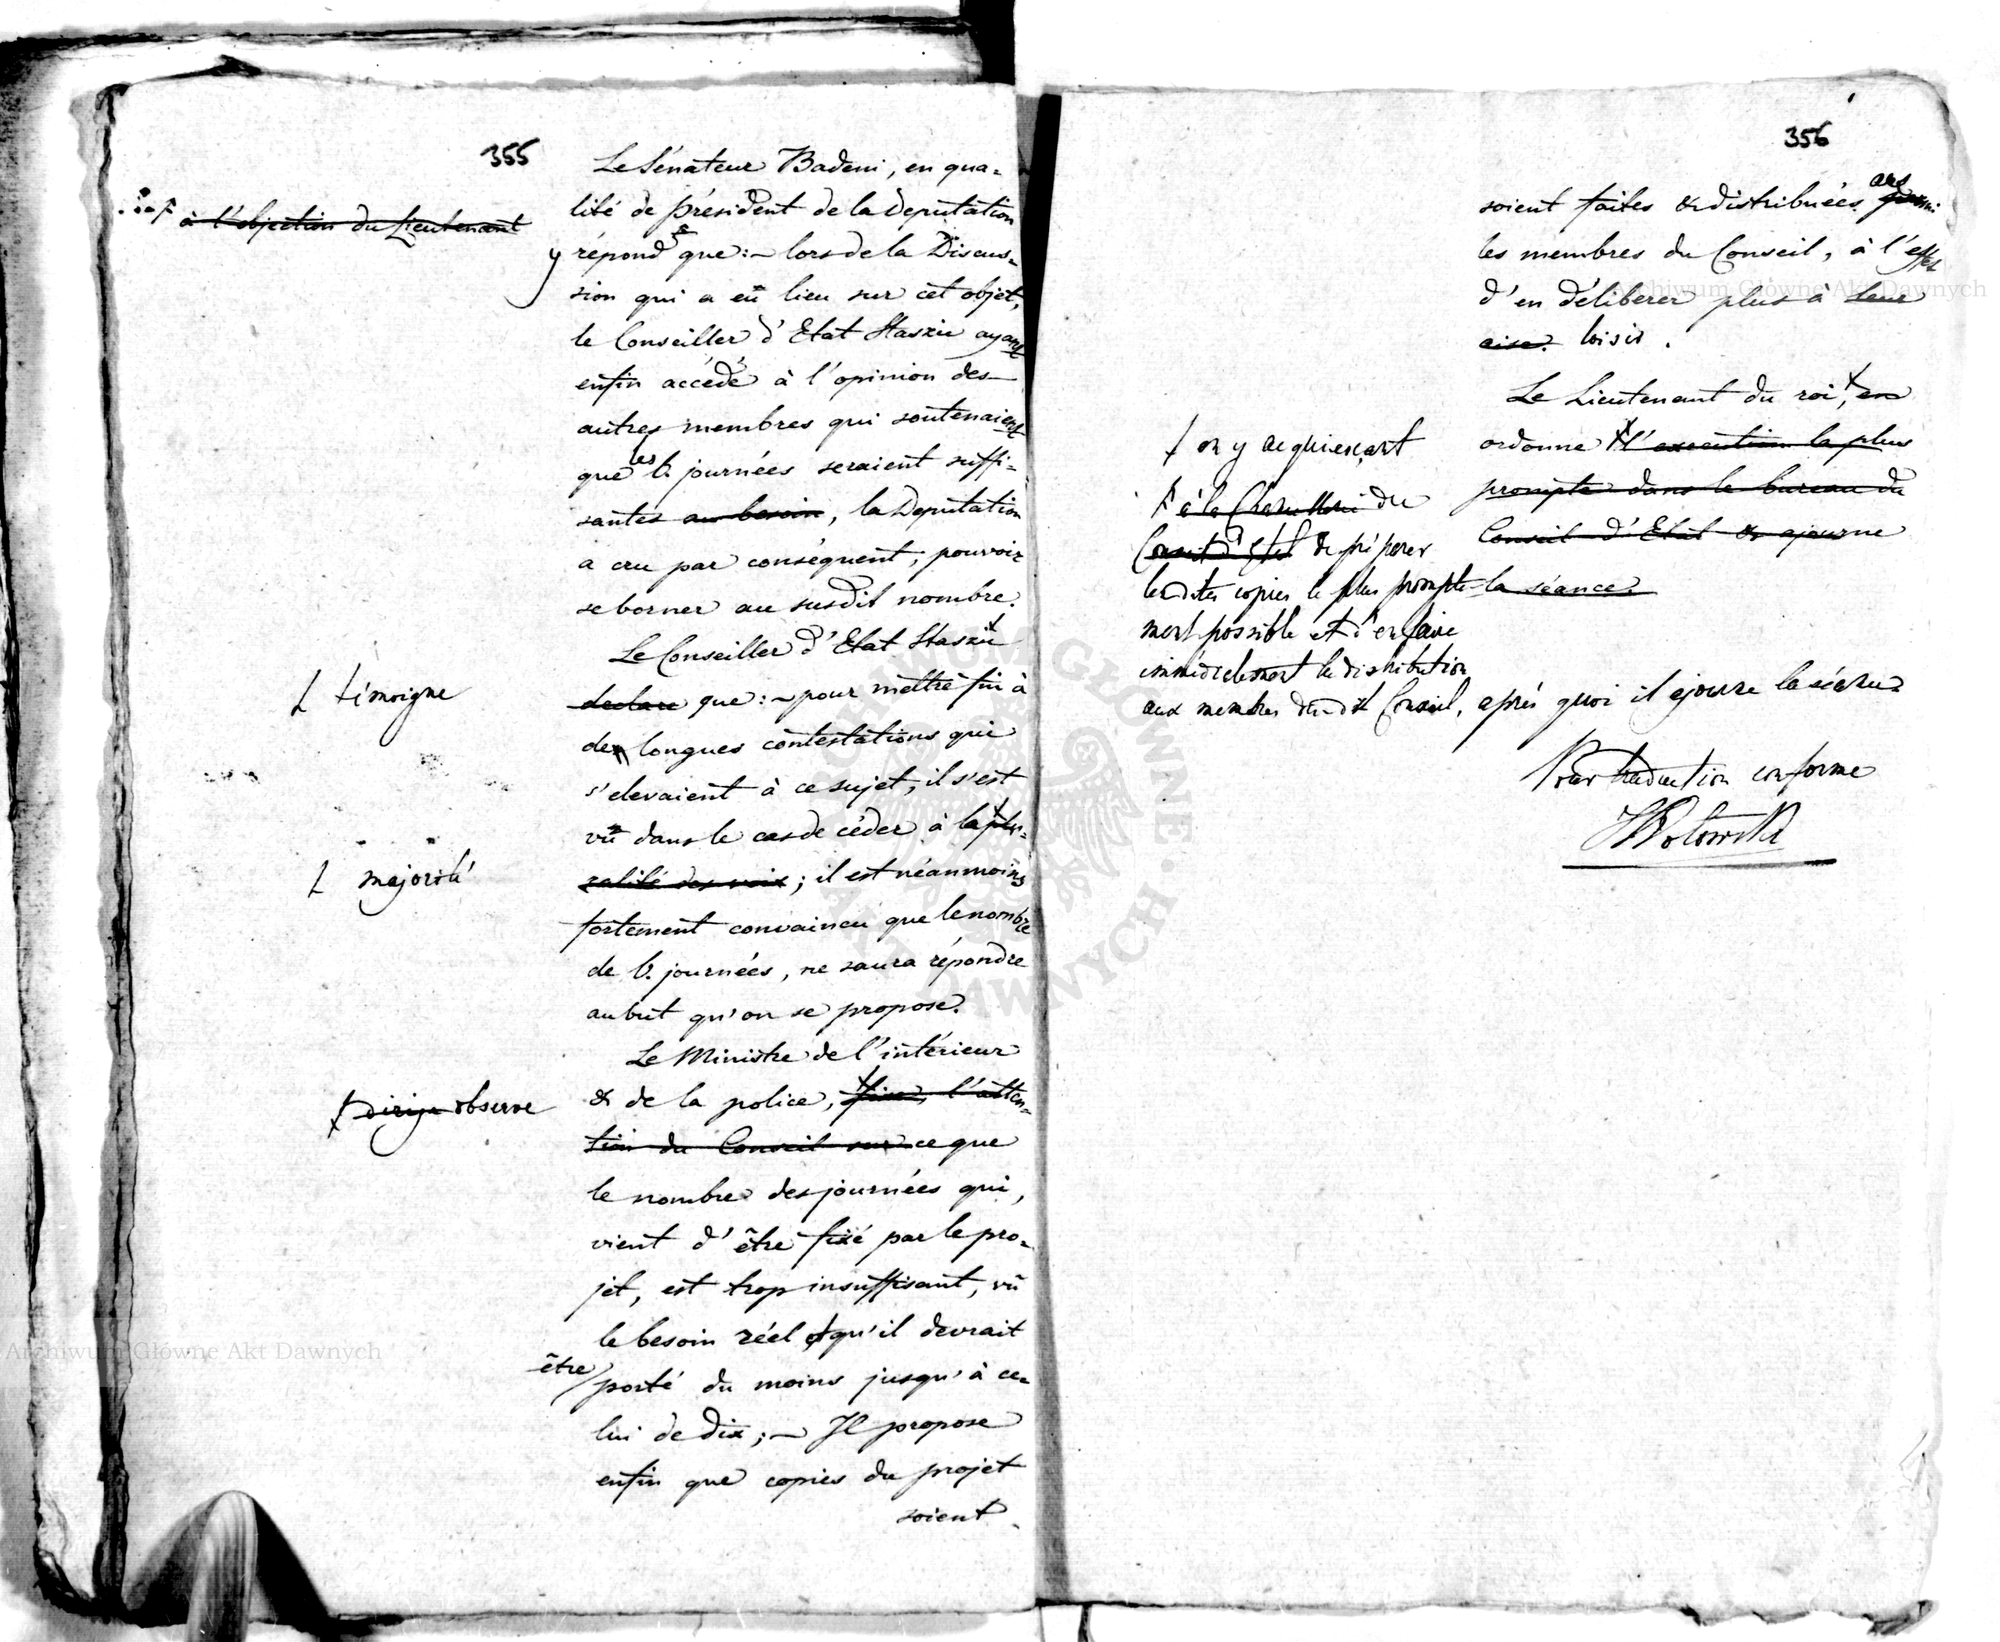 355
Le Sénateur Badeni, en qua-
lité de président de la Deputation
à l'objection du Lieutenant
y répond que:~ lors de la Discus-
sion qui a eû lieu sur cet objet,
le Conseiller d'Etat Staszic ayant
enfin accédé à l'opinion des
autres membres qui soutenaient
que les 6. journées seraient suffi-
santes au besoin, la Deputation
a cru par conséquent, pouvoir
se borner au susdit nombre.
Le Conseiller d'Etat Staszic
témoigne
declare que:~ pour mettre fin à
de longues contestations qui
s'elevaient à ce sujet, il s'est
vû dans le cas de céder à la plu-
majorité
ralité des voix; il est néanmoins
fortement convaincu que le nombre
de 6. journées, ne saura répondre
au but qu'on se propose.
Le Ministre de l'intérieur
& de la police, fixe l'atten-
dirige observe
tion du Conseil sur ce que
le nombre des journées qui,
vient d'être fixé par le pro-
jet, est trop insuffisant, vû
le besoin réel & qu'il devrait
être porté du moins jusqu'à ce-
lui de dix;~ Il propose
enfin que copies du projet
soient
356
soient faites & distribuées aux parmi
les membres du Conseil, à l'effet
d'en déliberer plus à leur
aise. loisir.
Le Lieutenant du roi, en
on y acquiesçant
ordonne l'execution la plus
prompte dans le bureau du
Conseil d'Etat & ajourne
la séance.
à la Chancellerie du
Conseil d'Etat de préparer
les dites copies le plus prompte-
ment possible et d'en faire
immédiatement la distribution
aux membres du dit Conseil, après quoi il ajourne la séance
Pour traduction conforme